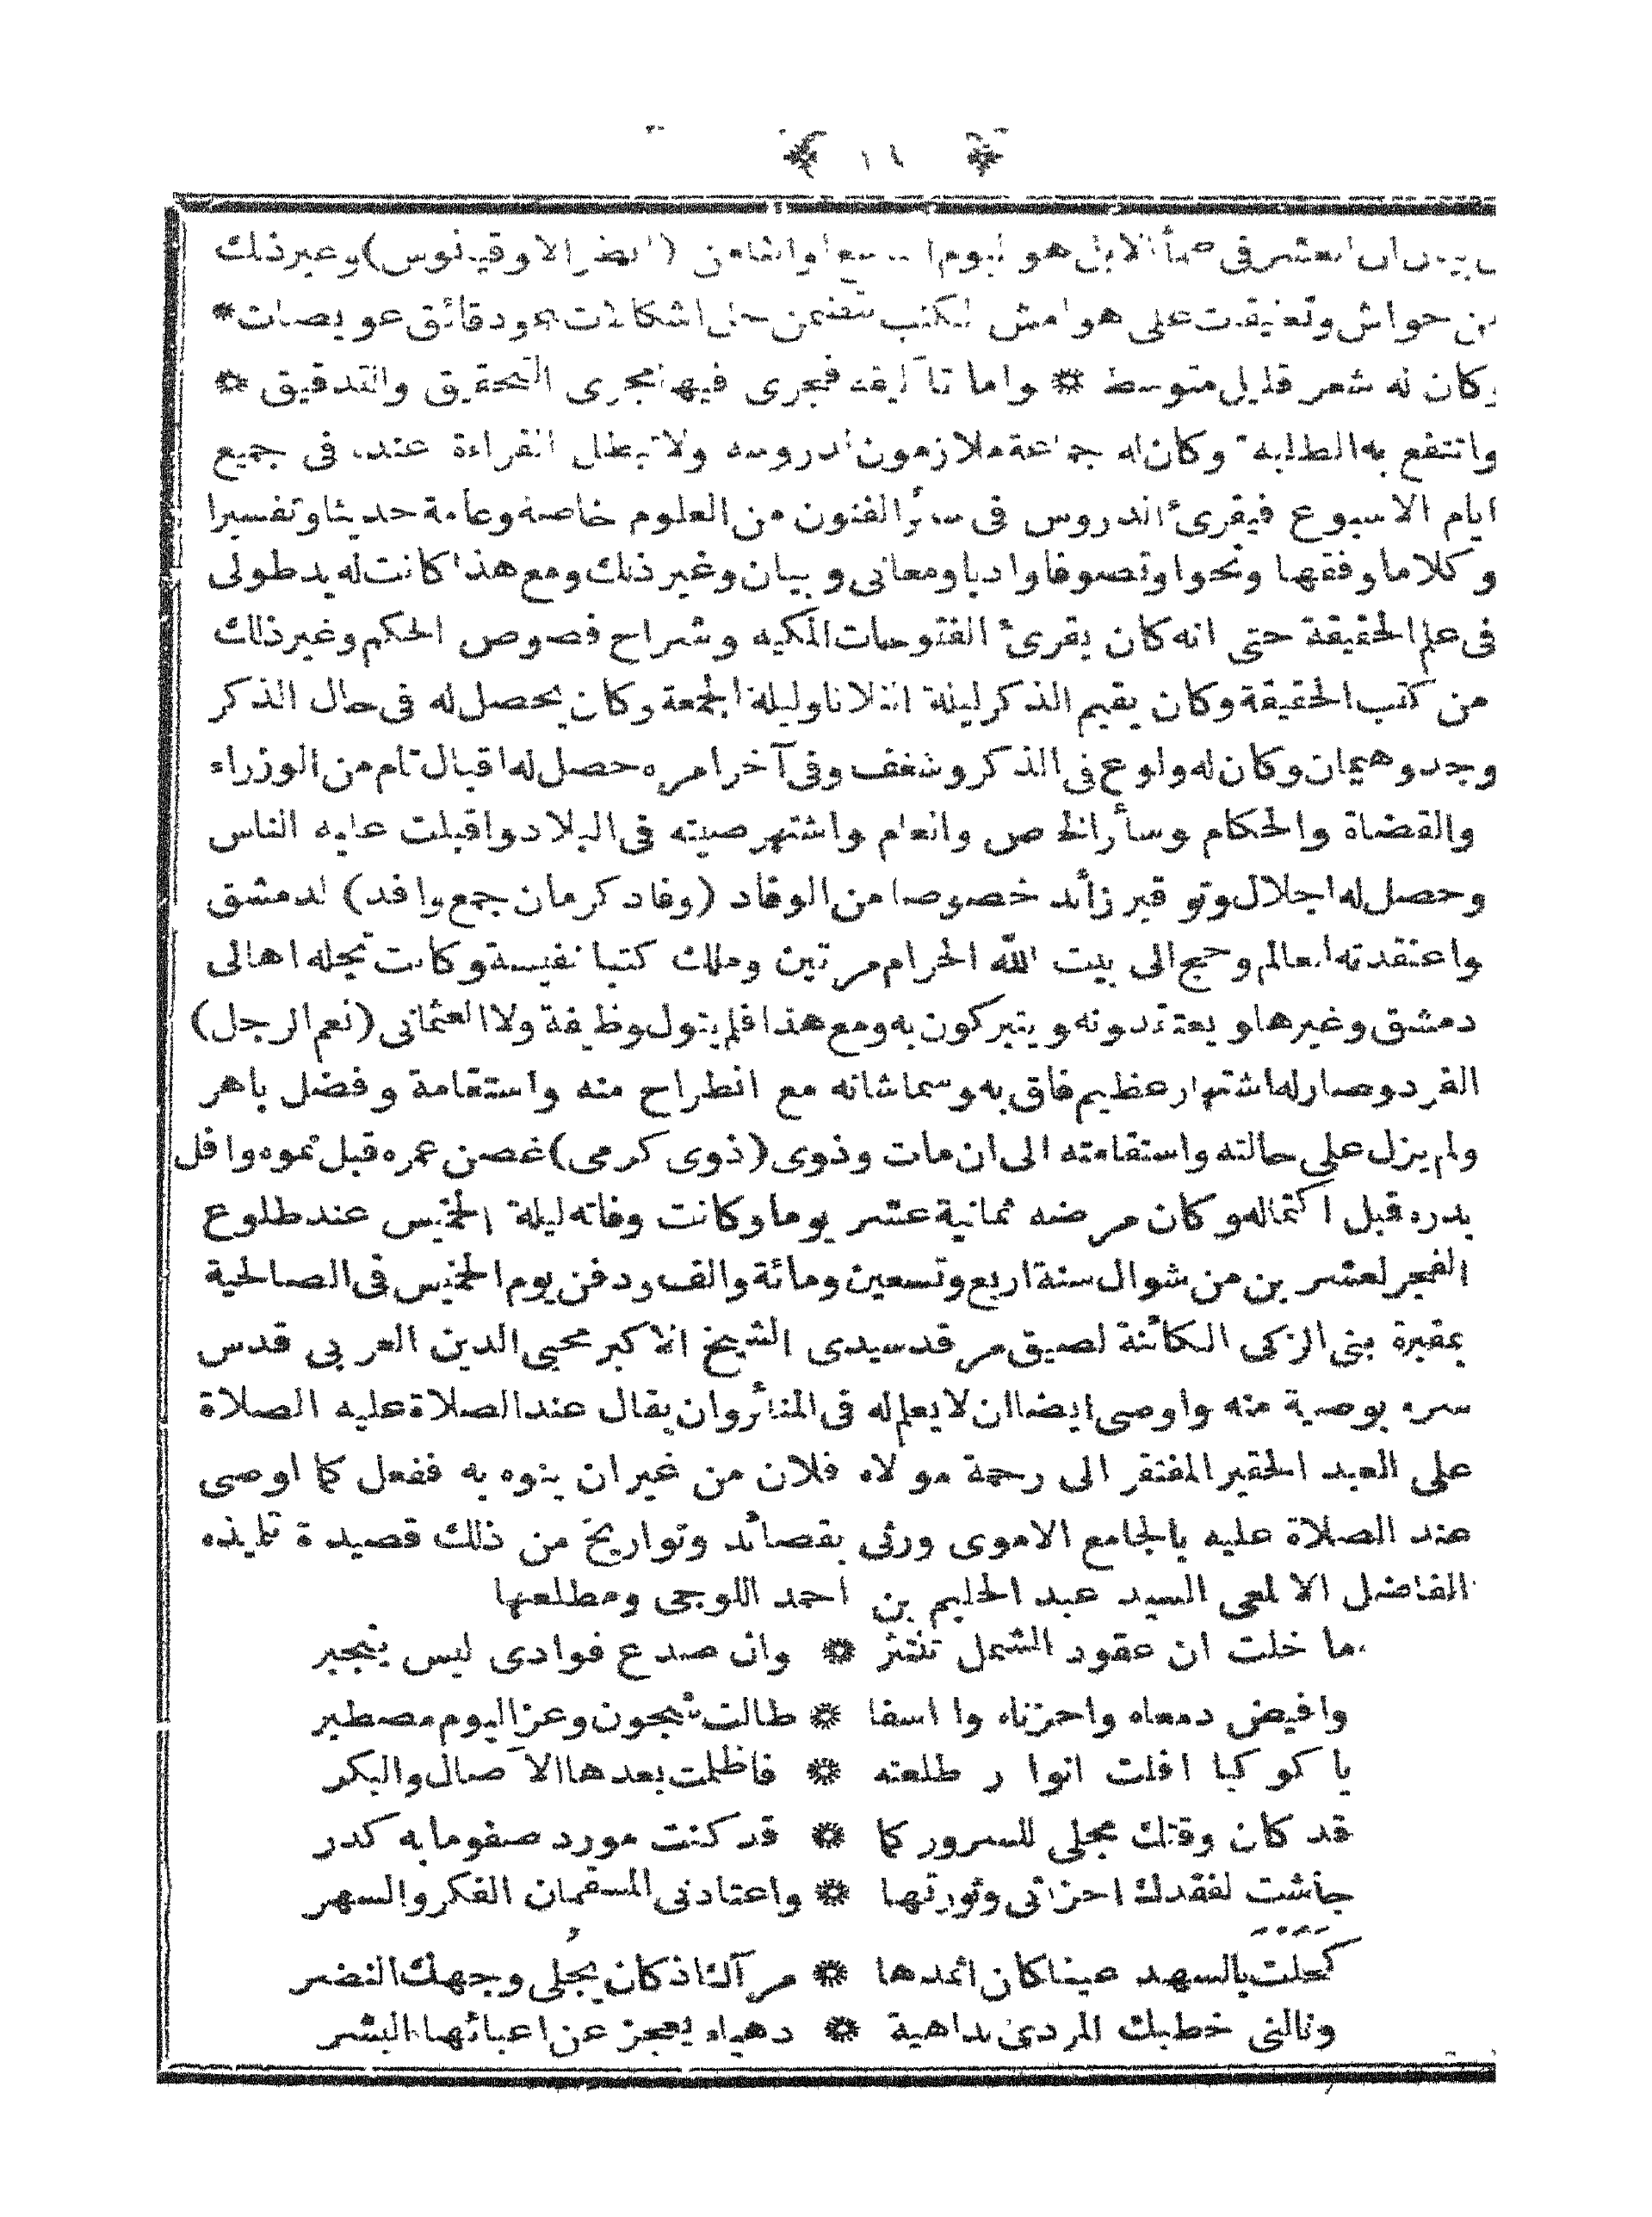 ﴿ ١٤ ﴾
العشر فى هو (انظر الاوقيانوس) وغير ذلك
من حواش وتعليقات على هوامش الكتب تتضمن حل اشكالات ودقائق عويصات *
وكان له شعر قليل متوسط * واما تآليفه فيجرى فيها مجرى التحقيق والتدقيق *
وانتفع به الطلبة وكان له جماعة ملازمون لدروسه ولا تبطل القراءة عنده فى جميع
ايام الاسبوع فيقرئ الدروس فى سائر الفنون من العلوم خاصة وعامة حديثا وتفسيرا
وكلاما وفقها ونحوا وتصوفا وادبا ومعانى وبيان وغير ذلك ومع هذا كانت له يد طولى
فى علم الحقيقة حتى انه كان يقرئ الفتوحات المكيه وشراح فصوص الحكم وغير ذلك
من كتب الحقيقة وكان يقيم الذكر ليلة الثلاثا وليلة الجمعة وكان يحصل له فى حال الذكر
وجد وهيمان وكان له ولوع فى الذكر وشغف وفى آخر امره حصل له اقبال تام من الوزراء
والقضاة والحكام وسائر الخاص وانعام واشتهر صيته فى البلاد واقبلت عليه الناس
وحصل له اجلال وتوقير زائد خصوصا من الوفاد (وفاد كرمان جمع وافد) لدمشق
واعتقدته العالم وحج الى بيت الله الحرام مرتين وملك كتبا نفيسة وكانت تجله اهالى
دمشق وغيرها ويعتقدونه ويتبركون به ومع هذا فلم يتول وظيفة ولا العثمانى (نعم الرجل)
الفرد وصار له اشتهار عظيم فاق به وسما شانه مع انطراح منه واستقامة وفضل باهر
ولم يزل على حالته واستقامته الى ان مات وذوى (ذوى كرمى) غصن عمره قبل نموه وافل
بدره قبل اكتماله وكان مرضه ثمانية عشر يوما وكانت وفاته ليلة الخميس عند طلوع
الفجر لعشر بن من شوال سنة اربع وتسعين ومائة والف ودفن يوم الخميس فى الصالحية
بمقبرة بنى الزكى الكائنة لصيق مرقد سيدى الشيخ الاكبر محيى الدين العربى قدس
سره بوصية منه واوصى ايضا ان لا يعلم له فى المنائر وان يقال عند الصلاة عليه الصلاة
على العبد الحقير المفتقر الى رحمة مولاه فلان من غير ان ينوه به ففعل كما اوصى
عند الصلاة عليه بالجامع الاموى ورثى بقصائد وتواريخ من ذلك قصيدة تلميذه
الفاضل الالمعى السيد عبد الحليم بن احمد اللوجى ومطلعها
ما خلت ان عقود الشمل تنتثر * وان صدع فوادى ليس ينجبر
وافيض دمعاه واحزناه وا اسفا * طالت شجون وعز اليوم مصطبر
يا كوكبا افلت انوار طلعته * فاظلمت بعدها الآصال والبكر
قد كان وقتك مجلى للسرور كما * قد كنت مورد صفو ما به كدر
جاشت لفقدك احزانى وثورتها * واعتادنى المسقمان الفكر والسهر
كحلت بالسهد عينا كان اثمدها * مرآك اذ كان يجلى وجهك النضر
ونالنى خطبك المردى بداهية * دهياء يعجز عن اعبائها البشر